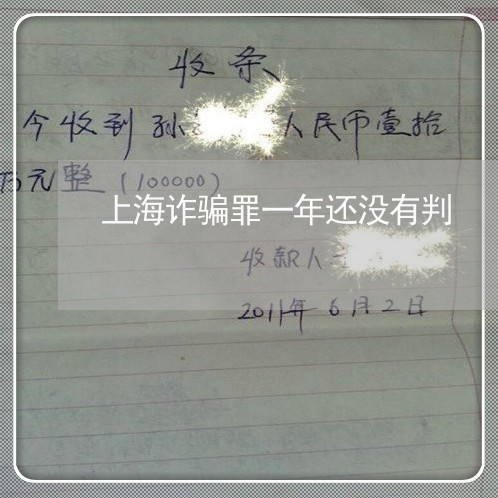 收条
今收到孙 人民币壹拾
万元整(100000)
上海诈骗罪一年还没有判
收款人
2011年6月2日